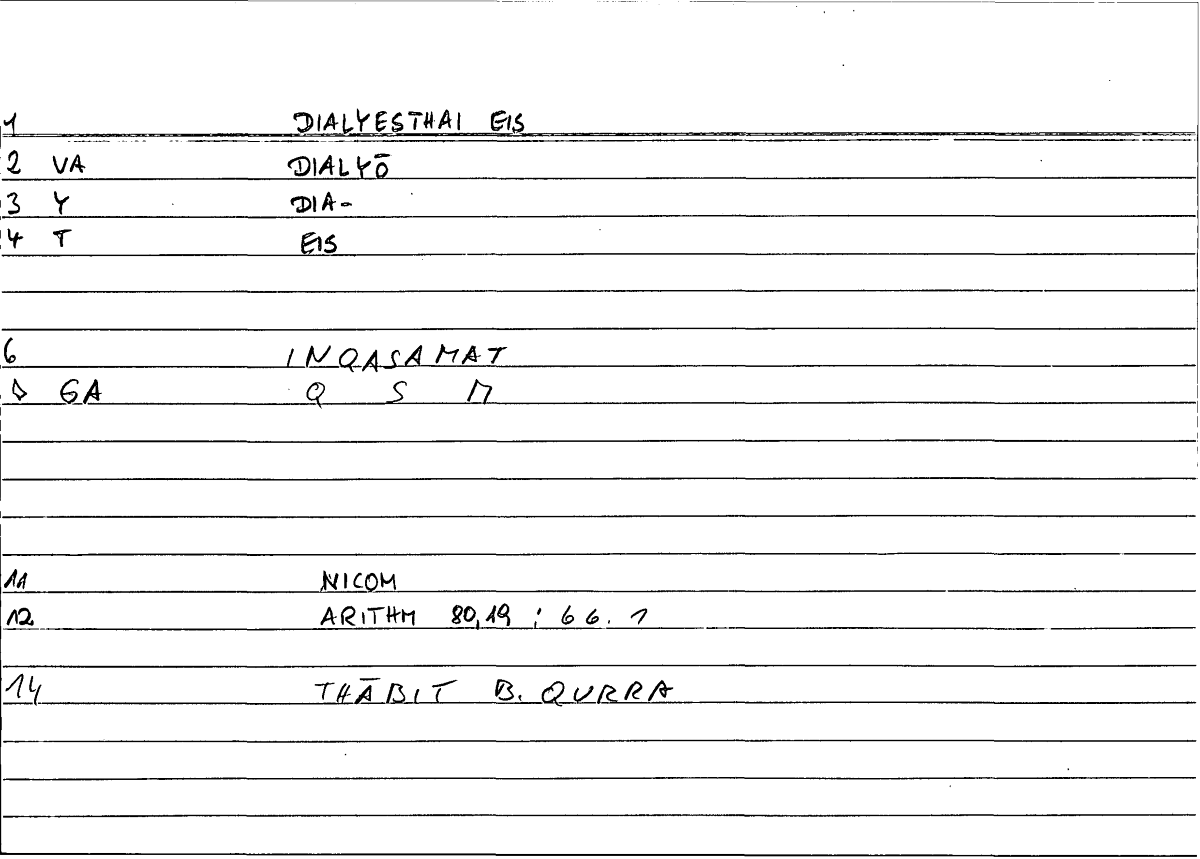 1 DIALYESTHAI EIS
2 VA DIALYŌ
3 Y DIA-
4 T EIS
6 INQASAMAT
GA Q S M
11 NICOM
12 ARITHM 80,19 ; 66.1
14 THĀBIT B. QURRA